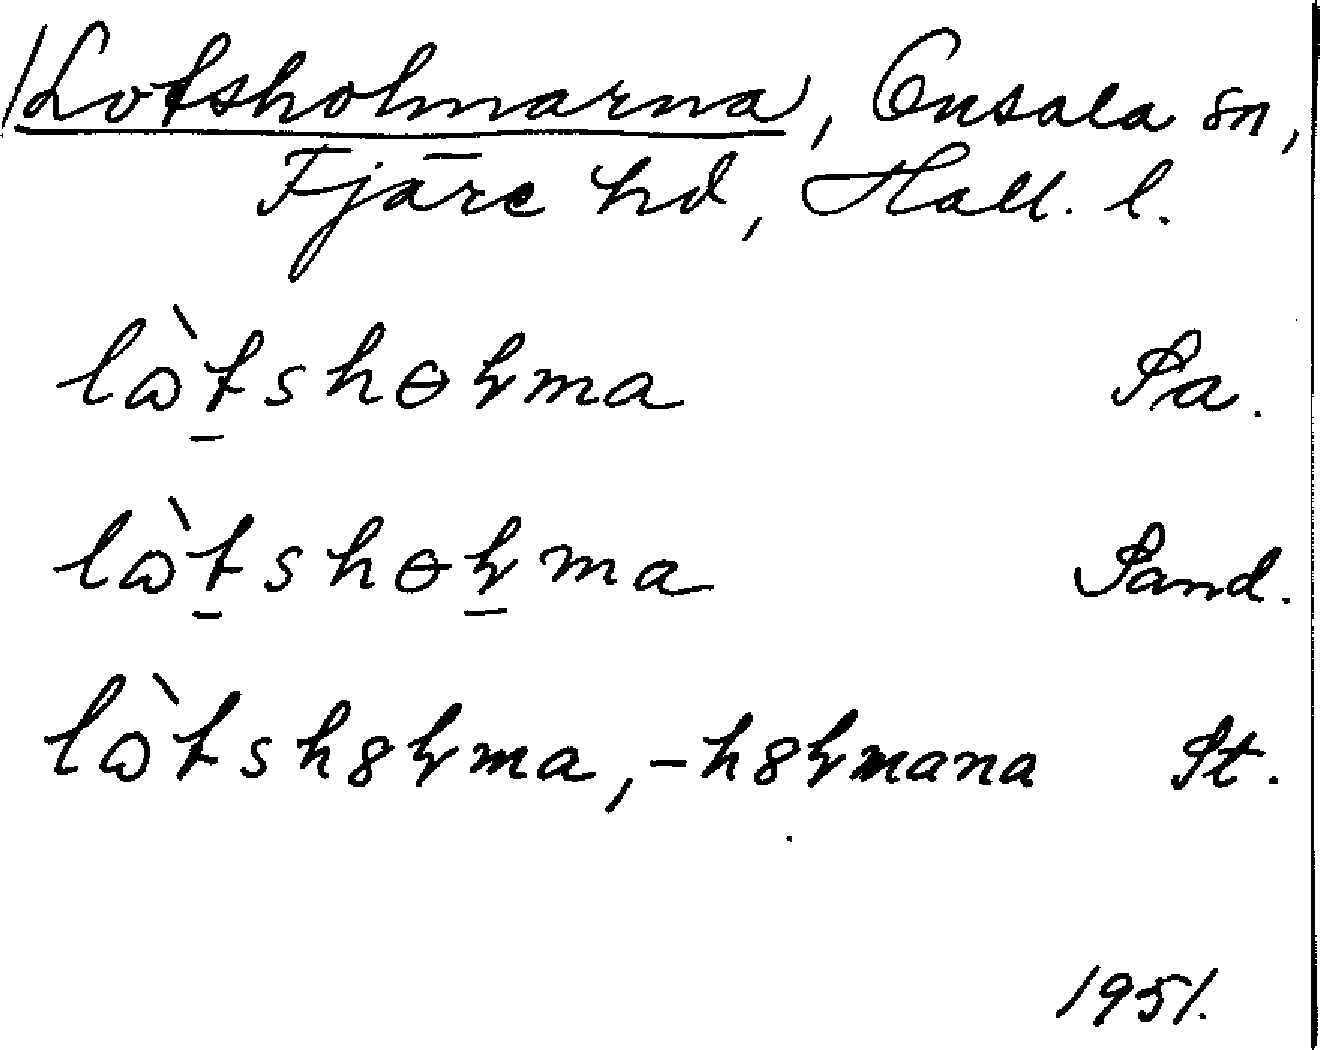 /Lotsholmarna/, Onsala sn,
Fjäre hd, Hall. l.
lὼtshɵɽma Pa.
lὼtshɵɽma Sand.
lὼtsh8ɽma, -h8ɽmana St.
1951.